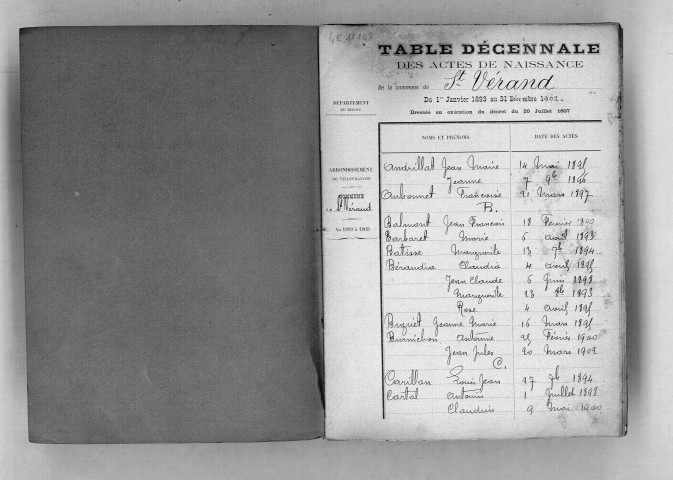 4E 11168
TABLE DÉCENNALE
DES ACTES DE NAISSANCE
De la commune de St Vérand
Du 1er Janvier 1893 au 31 Décembre 1902.
Dressée en exécution du décret du 20 Juillet 1807
DÉPARTEMENT
DU RHÔNE
ARRONDISSEMENT
DE VILLEFRANCHE
COMMUNE
de St Vérand
An 1893 à 1903
NOMS ET PRÉNOMS DATE DES ACTES
Andrillat Jean Marie 14 Mai 1895
Jeanne 7 9b 1896
Aubonnet Francoise 21 Mars 1897
B.
Balmont Jean Francois 18 Février 1899
Barbaret Marie 6 avril 1898
Batisse Marguerite 13 7b 1894
Bérandia Claudia 4 avril 1895
Jean Claude 6 Juin 1898
Marguerite 23 8b 1893
Rose 4 avril 1895
Biguet Jeanne Marie 16 Mars 1895
Burnichon Antonine 25 Février 1900
Jean Jules 20 Mars 1902
C.
Carillan Louis Jean 27 7b 1894
Cartal Antonin 1 Juillet 1898
Claudius 9 Mai 1900